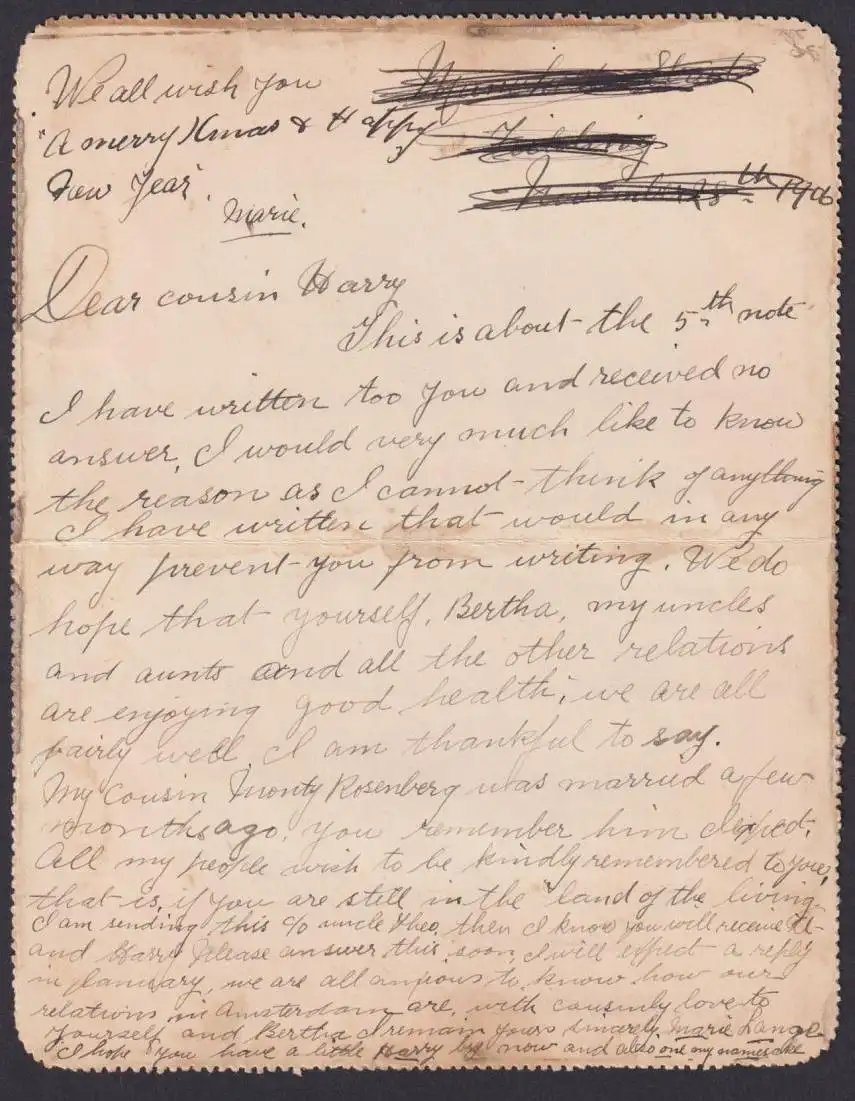 We all wish you
"A merry Xmas & Happy
New Year"
Marie.
Manchester Street
Feilding
November 28th 1906
Dear cousin Harry
This is about the 5th note
I have written too you and received no
answer, I would very much like to know
the reason as I cannot think of anything
I have written that would in any
way prevent you from writing. We do
hope that yourself, Bertha, my uncles
and aunts and all the other relations
are enjoying good health, we are all
fairly well I am thankful to say.
My cousin Monty Rosenberg was married a few
months ago, you remember him I expect.
All my people wish to be kindly remembered to you,
that is, if you are still in the "land of the living.
I am sending this c/o uncle Theo, then I know you will receive it
and Harry please answer this soon, I will expect a reply
in January, we are all anxious to know how our
relations in Amsterdam are, with cousinly love to
yourself and Bertha I remain yours sincerely, Marie Lange
I hope you have a little Harry by now and also one my namesake